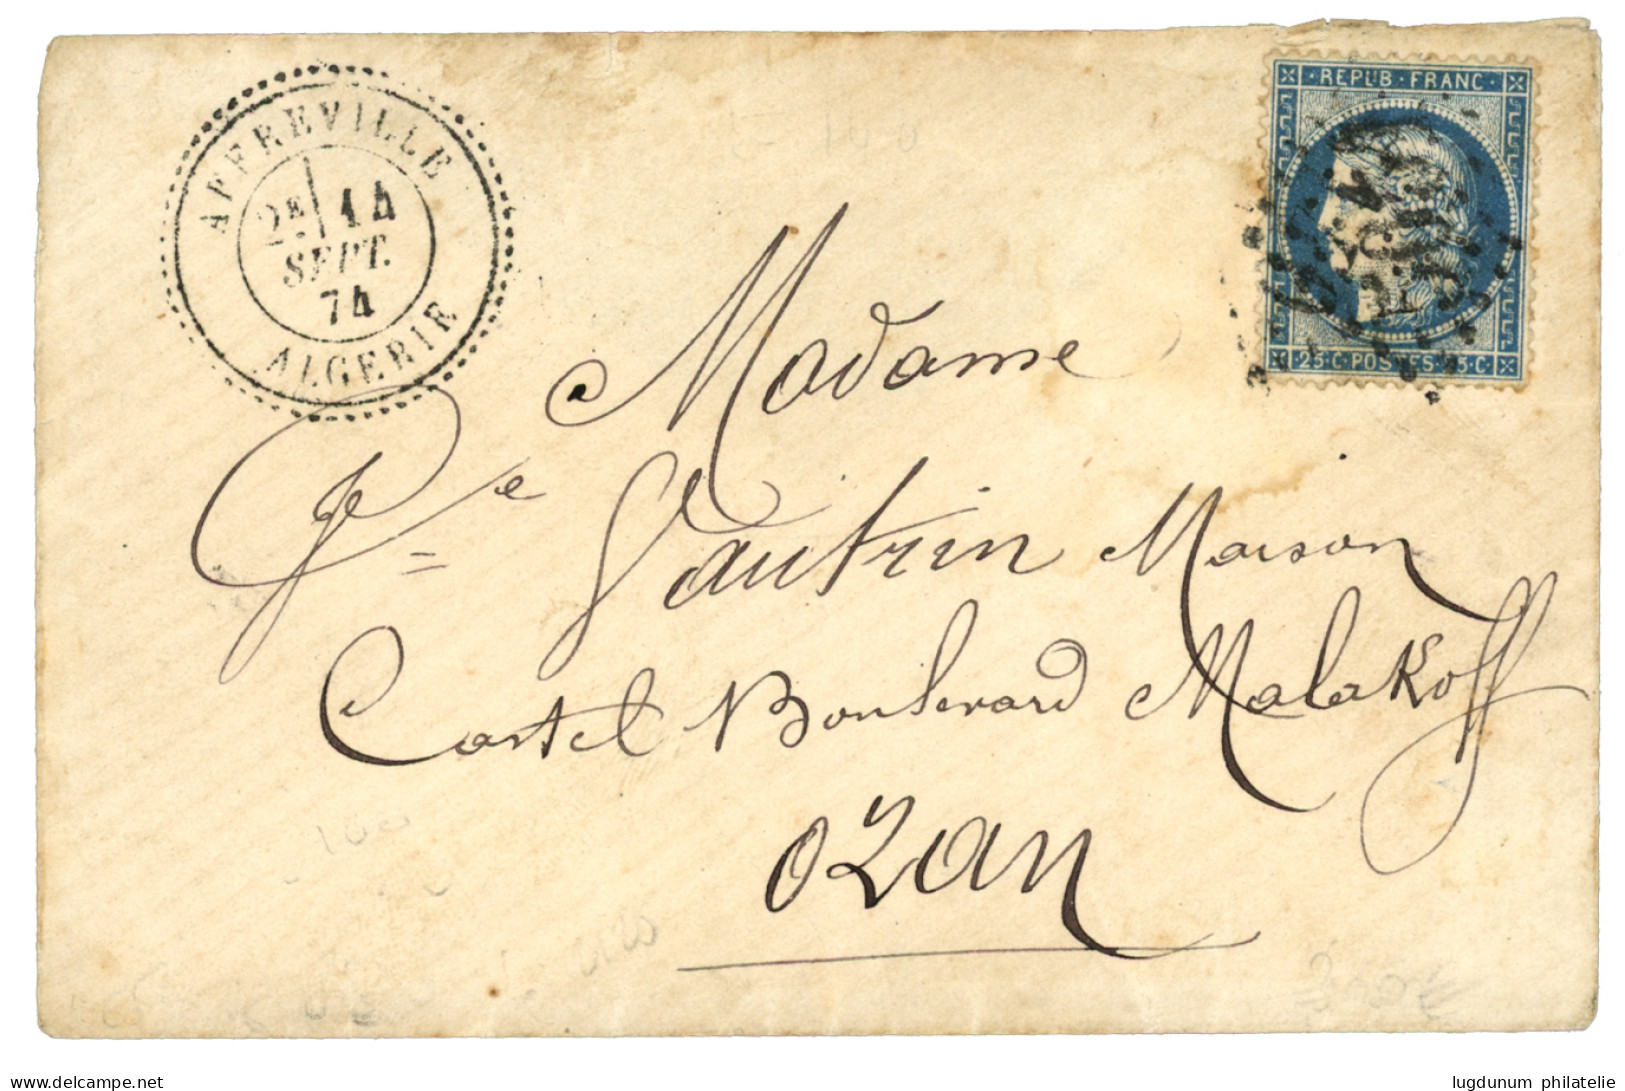 AFFREVILLE
2E 14
SEPT.
74
ALGERIE
REPUB · FRANC
25·C·POSTES·25·C
Madame
Vautrin Maison
Castel Boulevard Malakoff
Oran
lugdunum philatelie
www.delcampe.net